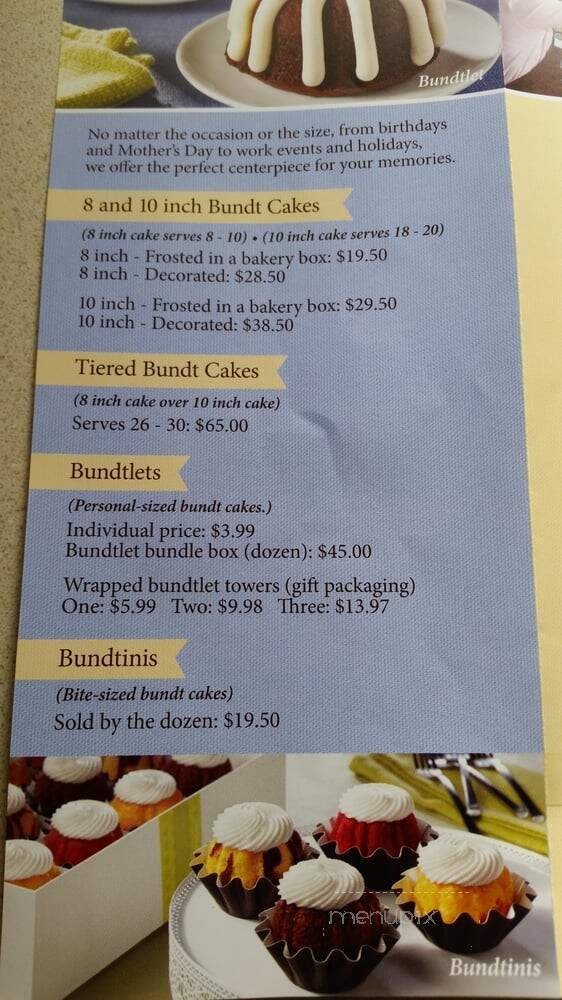 Bundtlet
No matter the occasion or the size, from birthdays
and Mother's Day to work events and holidays,
we offer the perfect centerpiece for your memories.
8 and 10 inch Bundt Cakes
(8 inch cake serves 8 - 10) • (10 inch cake serves 18 - 20)
8 inch - Frosted in a bakery box: $19.50
8 inch - Decorated: $28.50
10 inch - Frosted in a bakery box: $29.50
10 inch - Decorated: $38.50
Tiered Bundt Cakes
(8 inch cake over 10 inch cake)
Serves 26 - 30: $65.00
Bundtlets
(Personal-sized bundt cakes.)
Individual price: $3.99
Bundtlet bundle box (dozen): $45.00
Wrapped bundtlet towers (gift packaging)
One: $5.99 Two: $9.98 Three: $13.97
Bundtinis
(Bite-sized bundt cakes)
Sold by the dozen: $19.50
menupix
Bundtinis